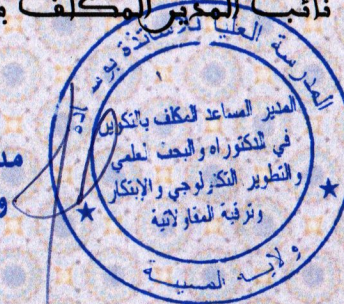 نائب المدير المكلف ب
المدرسة العليا للأساتذة بوسعادة
المدير المساعد المكلف بالتكوين
في الدكتوراه والبحث العلمي
والتطوير التكنولوجي والإبتكار
وترقية المقاولاتية
ولاية المسيلة